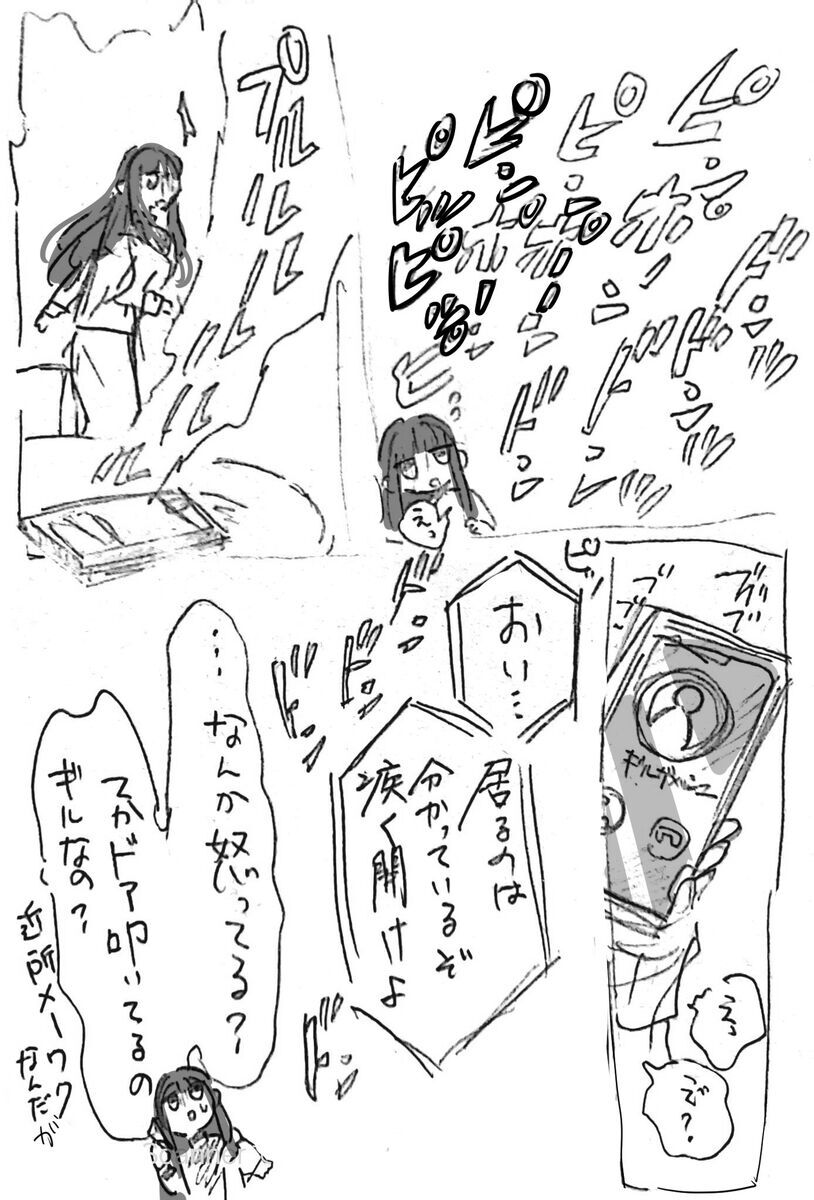 ピンポーン
ピンポン
ピンポン
ピピピ
ドンドン
ドンドン
ドンドン
えっ
プルルルルルルル
ブブブ
ブブ
ピッ
ギルガメッシュ
えっ
で?
おい…
居るのは
分かっているぞ
疾く開けよ
ドンドンドン
ドン
…なんか怒ってる?
てかドア叩いてるの
ギルなの?
近所メーワク
なんだが